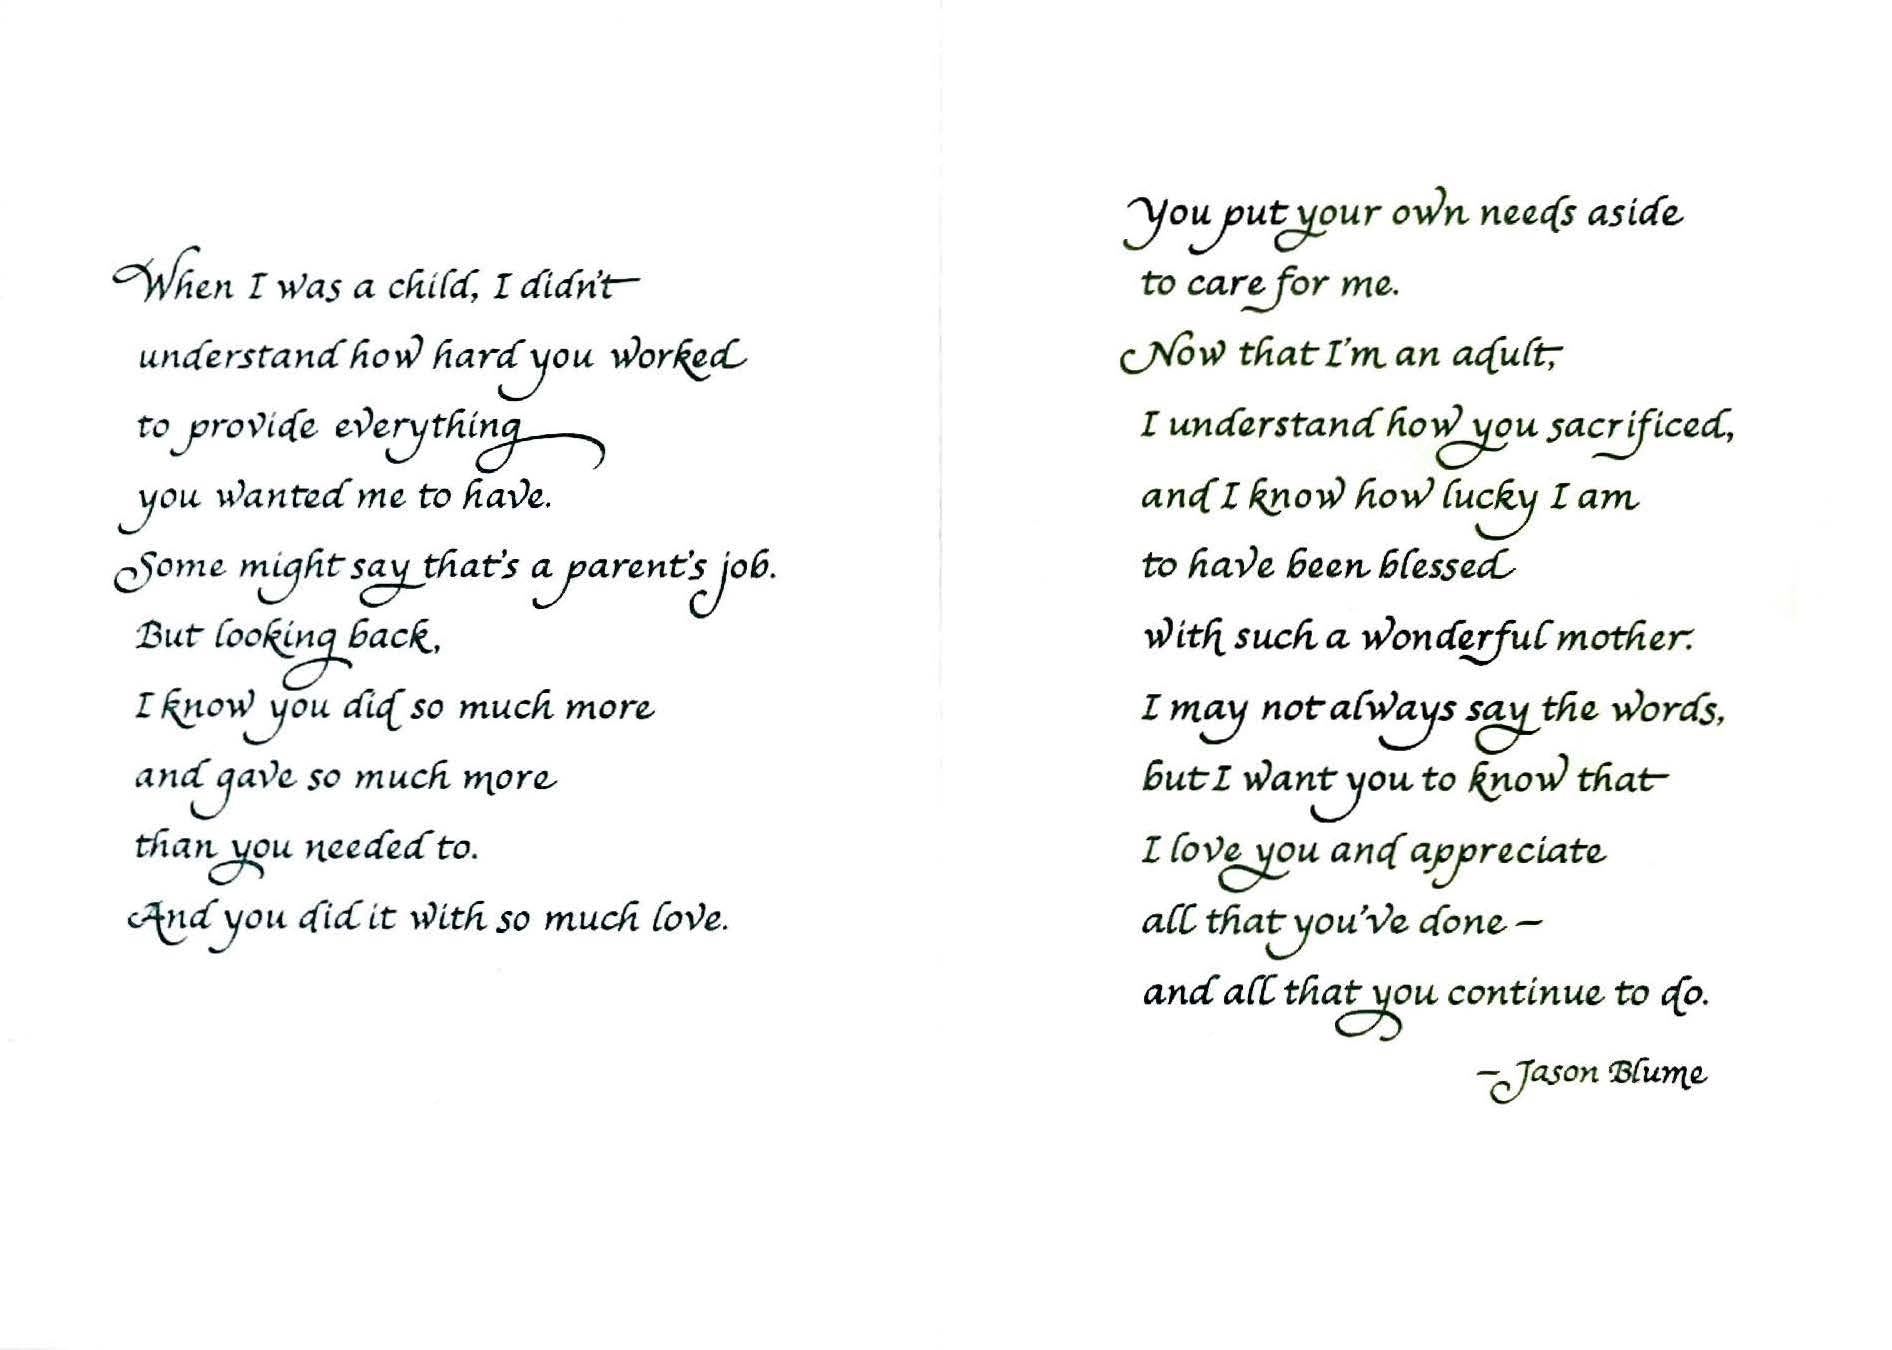 When I was a child, I didn't
understand how hard you worked
to provide everything
you wanted me to have.
Some might say that's a parent's job.
But looking back,
I know you did so much more
and gave so much more
than you needed to.
And you did it with so much love.
You put your own needs aside
to care for me.
Now that I'm an adult,
I understand how you sacrificed,
and I know how lucky I am
to have been blessed
with such a wonderful mother.
I may not always say the words,
but I want you to know that
I love you and appreciate
all that you've done –
and all that you continue to do.
– Jason Blume